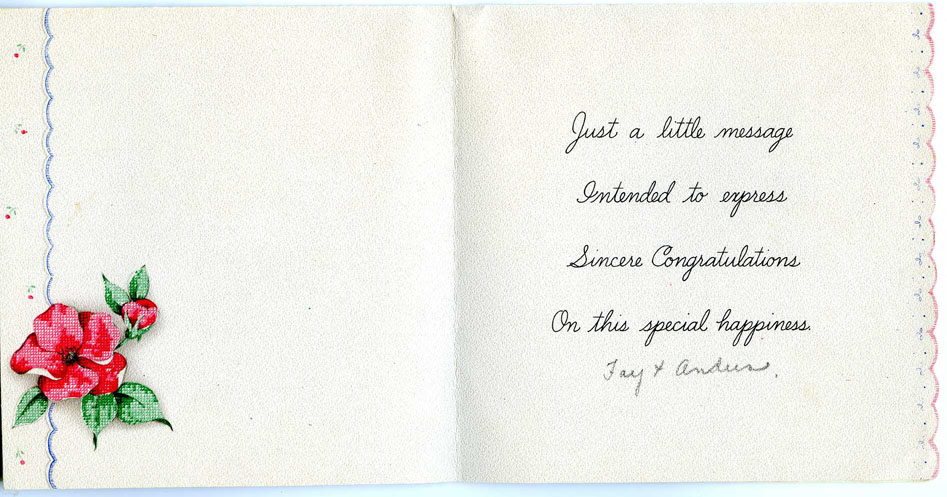 Just a little message
Intended to express
Sincere Congratulations
On this special happiness.
Fay &